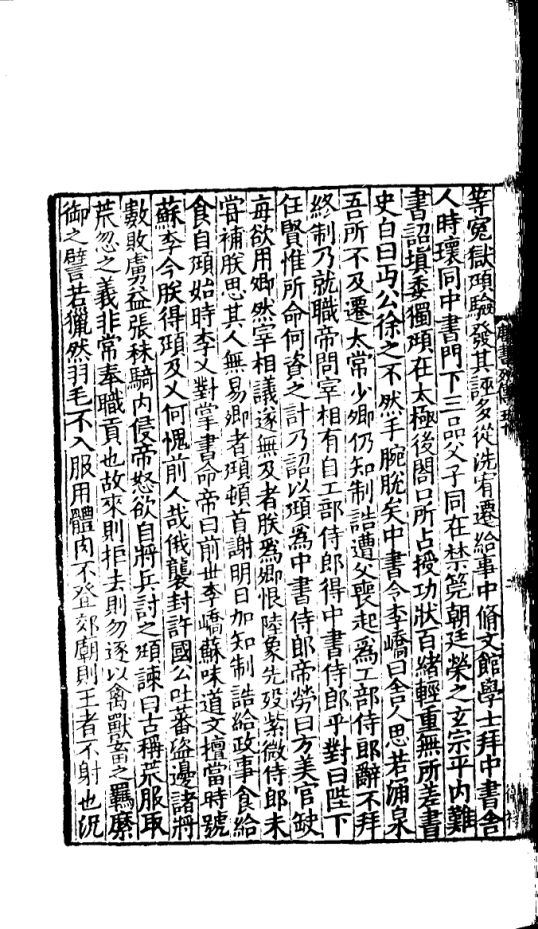 等冤獄頲驗發其誣多從洗宥遷給事中脩文館學士拜中書舍
人時瓌同中書門下三品父子同在禁筦朝廷榮之玄宗平內難
書詔填委獨頲在太極後閤口所占授功狀百緒輕重無所差書
史白曰丐公徐之不然手腕脫矣中書令李嶠曰舍人思若涌泉
吾所不及遷太常少卿仍知制誥遭父喪起爲工部侍郎辭不拜
終制乃就職帝問宰相有自工部侍郎得中書侍郎乎對曰陛下
任賢惟所命何資之計乃詔以頲爲中書侍郎帝勞曰方美官缺
每欲用卿然宰相議遂無及者朕爲卿恨陸象先歿紫微侍郎未
嘗補朕思其人無易卿者頲頓首謝明日加知制誥給政事食給
食自頲始時李乂對掌書命帝曰前世李嶠蘇味道文擅當時號
蘇李今朕得頲及乂何愧前人哉俄襲封許國公吐蕃盜邊諸將
數敗虜益張秣騎內侵帝怒欲自將兵討之頲諫曰古稱荒服取
荒忽之義非常奉職貢也故來則拒去則勿逐以禽獸畜之羈縻
御之譬若獵然羽毛不入服用體肉不登郊廟則王者不射也況